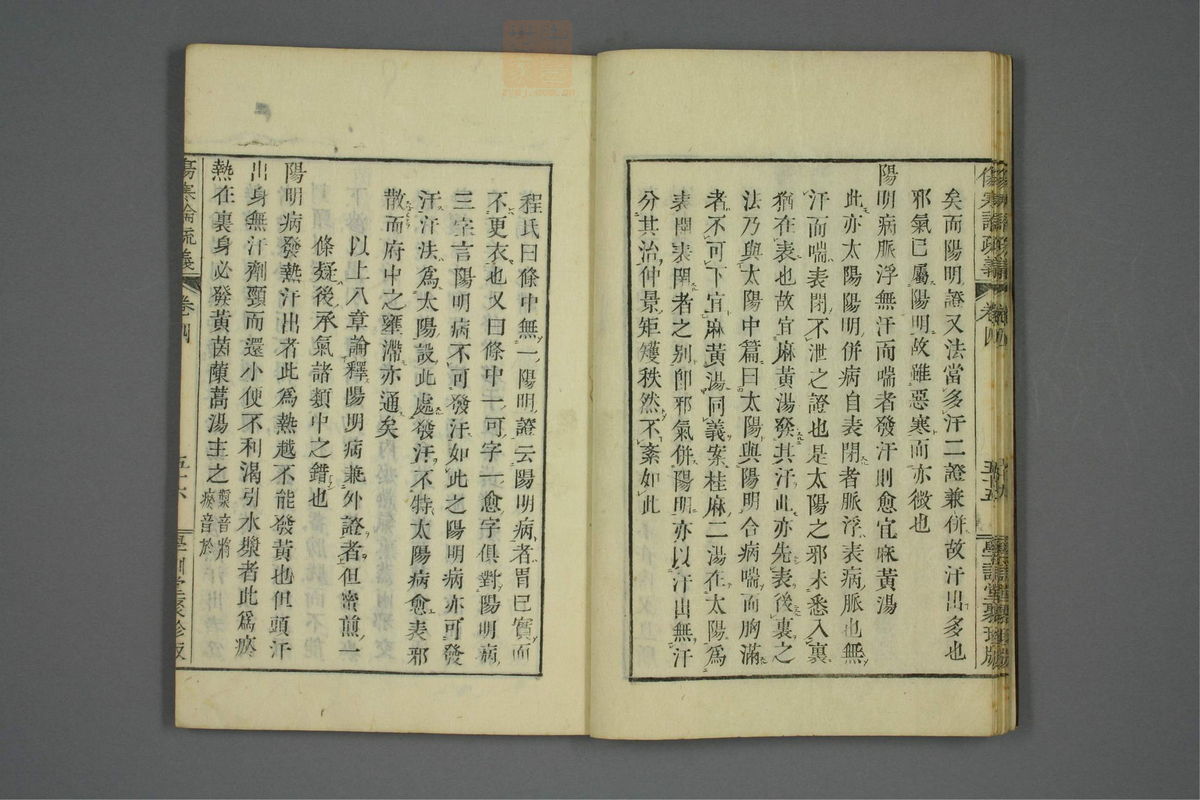 傷寒論疏義
卷四
五十五
學訓堂聚珍版
矣而陽明證又法當多汗二證兼併故汗出多也
邪氣已屬陽明故雖惡寒而亦微也
陽明病脈浮無汗而喘者發汗則愈宜麻黃湯
此亦太陽陽明併病自表閉者脈浮表病脈也無
汗而喘表閉不泄之證也是太陽之邪未悉入裏
猶在表也故宜麻黃湯發其汗此亦先表後裏之
法乃與太陽中篇曰太陽與陽明合病喘而胸滿
者不可下宜麻黃湯同義案桂麻二湯在太陽爲
表開表閉者之別卽邪氣併陽明亦以汗出無汗
分其治仲景矩矱秩然不紊如此
程氏曰條中無一陽明證云陽明病者胃已實而
不更衣也又曰條中一可字一愈字俱對陽明病
三字言陽明病不可發汗如此之陽明病亦可發
汗汗法爲太陽設此處發汗不特太陽病愈表邪
散而府中之壅滯亦通矣
以上八章論釋陽明病兼外證者但蜜煎一
條疑後承氣諸類中之錯也
陽明病發熱汗出者此爲熱越不能發黃也但頭汗
出身無汗劑頸而還小便不利渴引水漿者此爲瘀
熱在裏身必發黃茵蔯蒿湯主之漿音將瘀音於
傷寒論疏義
卷四
五十六
學訓堂聚珍版